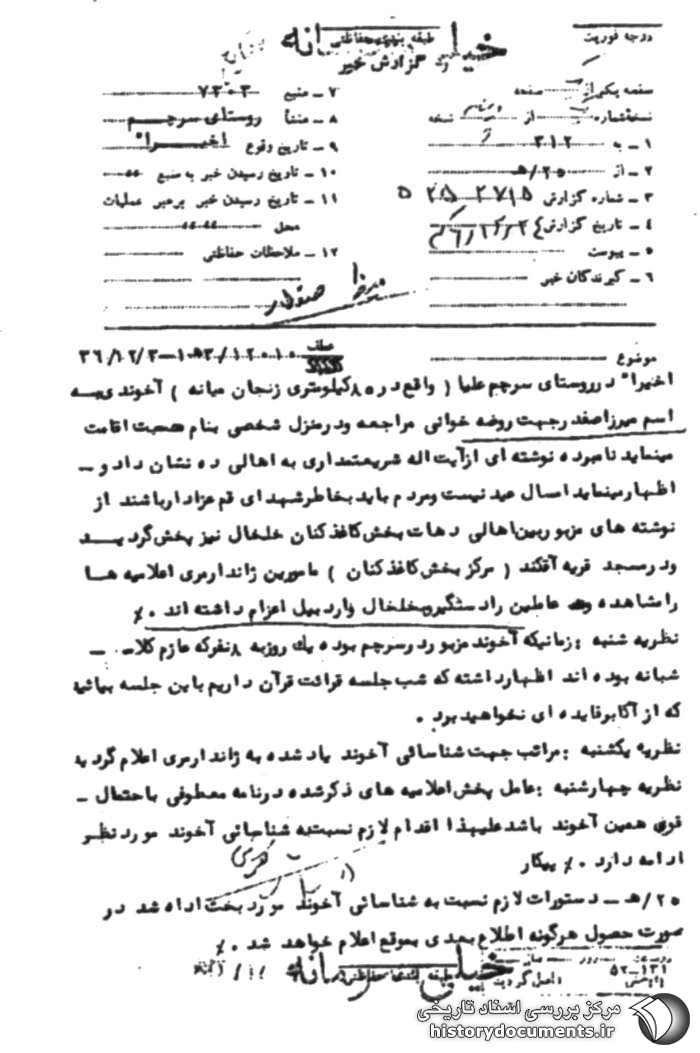 خیلی محرمانه
طبقه بندی حفاظتی
درجه فوریت
گزارش خبر
صفحه یکم از صفحه
نسخه شماره از نسخه
۱ ـ به ۳۱۲
۲ ـ از ۲۵/هـ
۳ ـ شماره گزارش
۴ ـ تاریخ گزارش
۵ ـ پیوست
۶ ـ گیرندگان خبر
۷ ـ منبع ۷۳۰۳
۸ ـ منشأ روستای سرچم
۹ ـ تاریخ وقوع اخیراً
۱۰ ـ تاریخ رسیدن خبر به منبع
۱۱ ـ تاریخ رسیدن خبر برهبر عملیات
محل
۱۲ ـ ملاحظات حفاظتی
میرزا صفدر
موضوع
عطف ۱۲۰۱۰/۱۰۵۳-۳۶/۱۲/۳
اخیراً درروستای سرچم علیا ( واقع در ۸۵ کیلومتری زنجان میانه ) آخوندی به
اسم میرزاصفدر جهت روضه خوانی مراجعه ودرمنزل شخصی بنام اقامت
مینماید نامبرده نوشته ای ازآیت اله شریعتمداری به اهالی ده نشان داد و ـ
اظهارمینماید امسال عید نیست ومردم باید بخاطرشهدای قم عزادارباشند از
نوشته های مزبوربین اهالی دهات بخش کاغذکنان خلخال نیز پخش گردیـــد
ودرمسجد قریه آقکند ( مرکز بخش کاغذکنان ) مامورین ژاندارمری اعلامیه هـا
رامشاهده و عاملین رادستگیروبخلخال واردبیل اعزام داشته اند ٪۰
نظریه شنبه : زمانیکه آخوند مزبور درسرچم بوده یک روزبه ۸ نفرکه عازم کلاس ـ
شبانه بوده اند اظهارداشته که شب جلسه قرائت قرآن داریم باین جلسه بیائید
که از آکابرفایده ای نخواهیدبرد ۰
نظریه یکشنبه : مراتب جهت شناسائی آخوند یاد شده به ژاندارمری اعلام گردید
نظریه چهارشنبه : عامل پخش اعلامیه های ذکرشده درنامه معطوفی باحتمال ـ
قوی همین آخوند باشد علیهذا اقدام لازم نسبت به شناسائی آخوند مورد نظر
ادامه دارد ٪۰ پیکار
۲۵/هـ ـ دستورات لازم نسبت به شناسائی آخوند مورد بحث داده شد در
صورت حصول هرگونه اطلاع بعدی بموقع اعلام خواهد شد ٪۰
خیلی محرمانه
طبقه بندی حفاظتی
۱۳۱ـ۵۲
مرکز بررسی اسناد تاریخی
historydocuments.ir